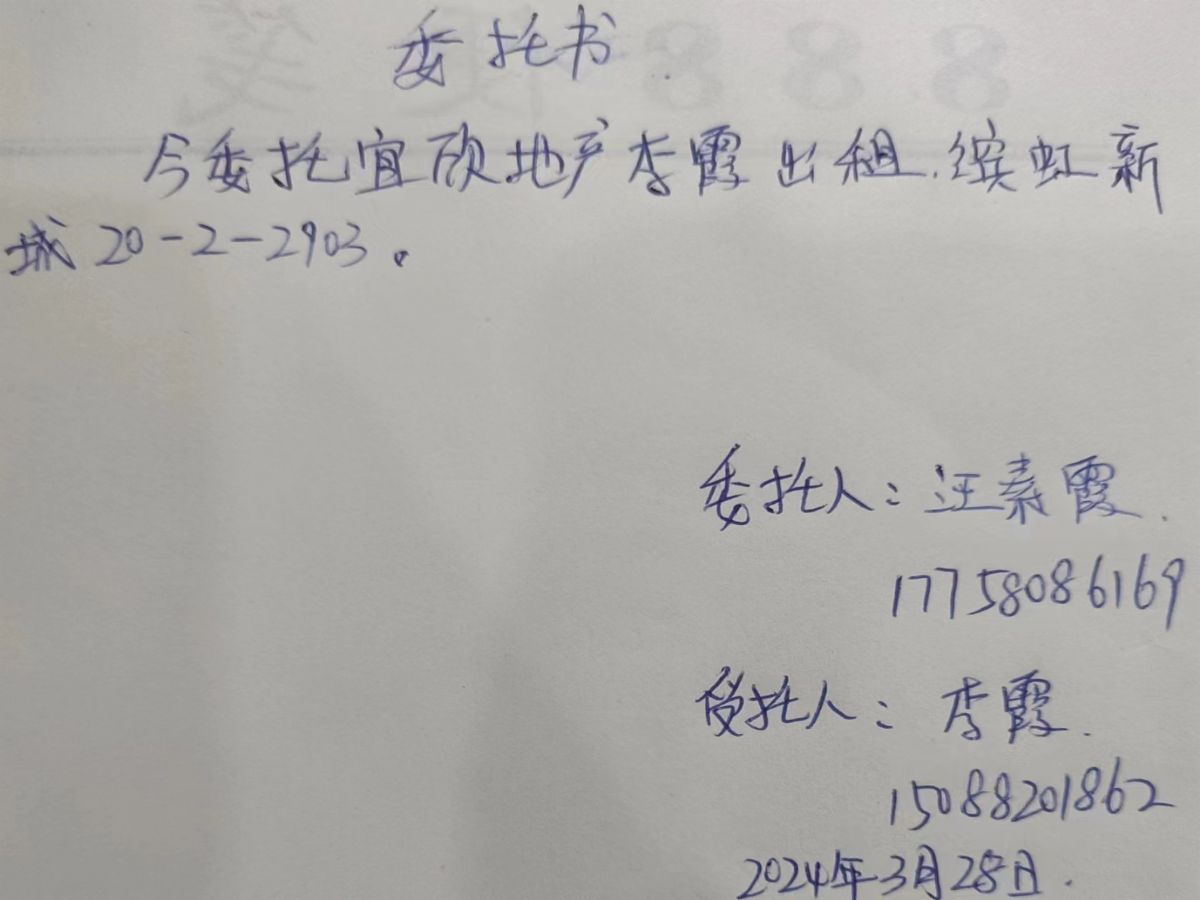 委托书
今委托宜欣地产李霞出租缤虹新
城20-2-2903。
委托人：汪素霞
17758086169
受托人：李霞
15088201862
2024年3月28日